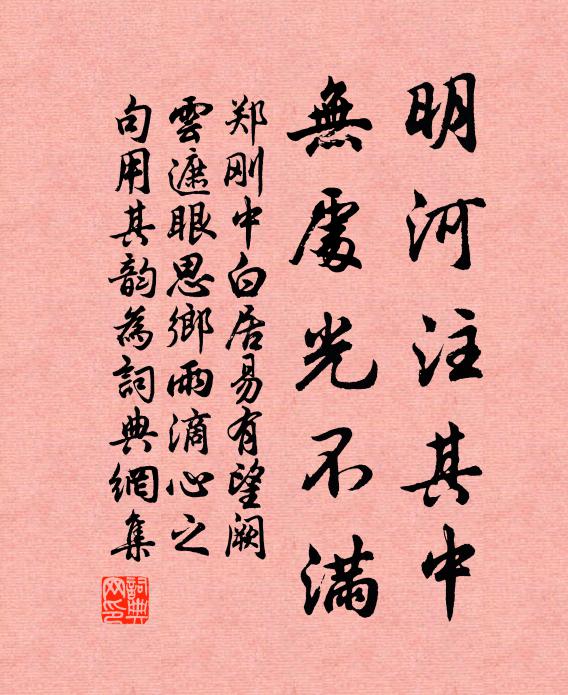 明河注其中
無處光不滿
郑刚中白居易有望阙
雲遮眼思鄉雨滴心之
句用其韵為詞典網集
詞典網印